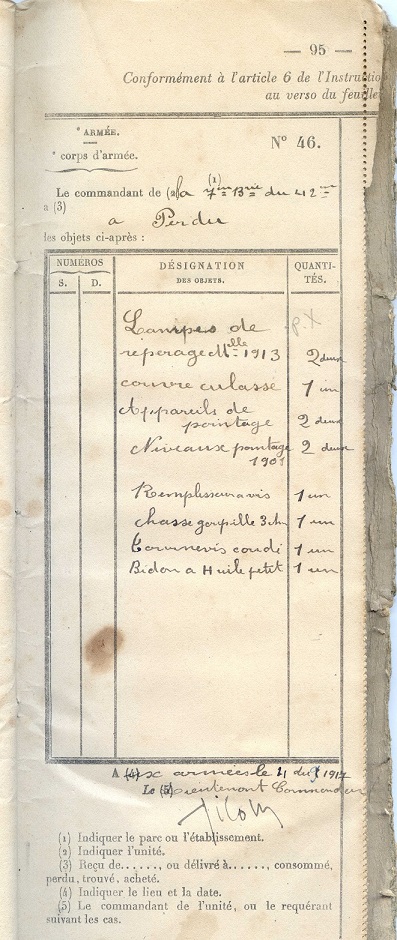 — 95 —
Conformément à l'article 6 de l'Instructio
au verso du feuille
* ARMÉE.
* corps d'armée.
N° 46.
(1)
Le commandant de (2) la 7me Brie du 42me
a (3)
a Perdu
les objets ci-après :
NUMEROS
DÉSIGNATION
DES OBJETS.
QUANTI-
TÉS.
S. D.
Lampes de
réperage Mlle 1913 2 deux
couvre culasse 1 un
Appareils de
pointage 2 deux
Niveaux pointage 2 deux
1901
Remplisseur a vis 1 un
chasse goupille 3 1 un
Tournevis coudé 1 un
Bidon a Huile petit 1 un
A (4) ux armées le 21 1917
Le (5) Lieutenant Commandant
(1) Indiquer le parc ou l'établissement.
(2) Indiquer l'unité.
(3) Reçu de......, ou délivré à......, consommé,
perdu, trouvé, acheté.
(4) Indiquer le lieu et la date.
(5) Le commandant de l'unité, ou le requérant
suivant les cas.